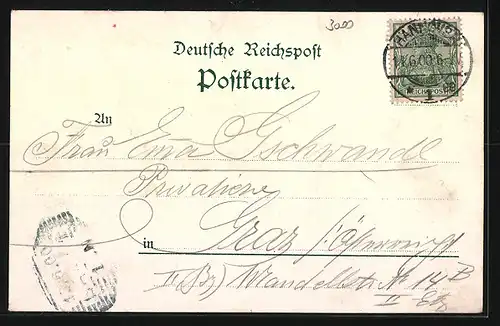 3000
Deutsche Reichspost
Postkarte.
REICHSPOST
An
Frau Ema Gschwandl
Private
in Graz /:Österreich
II Bz) Wandellstr. No 14 B
II